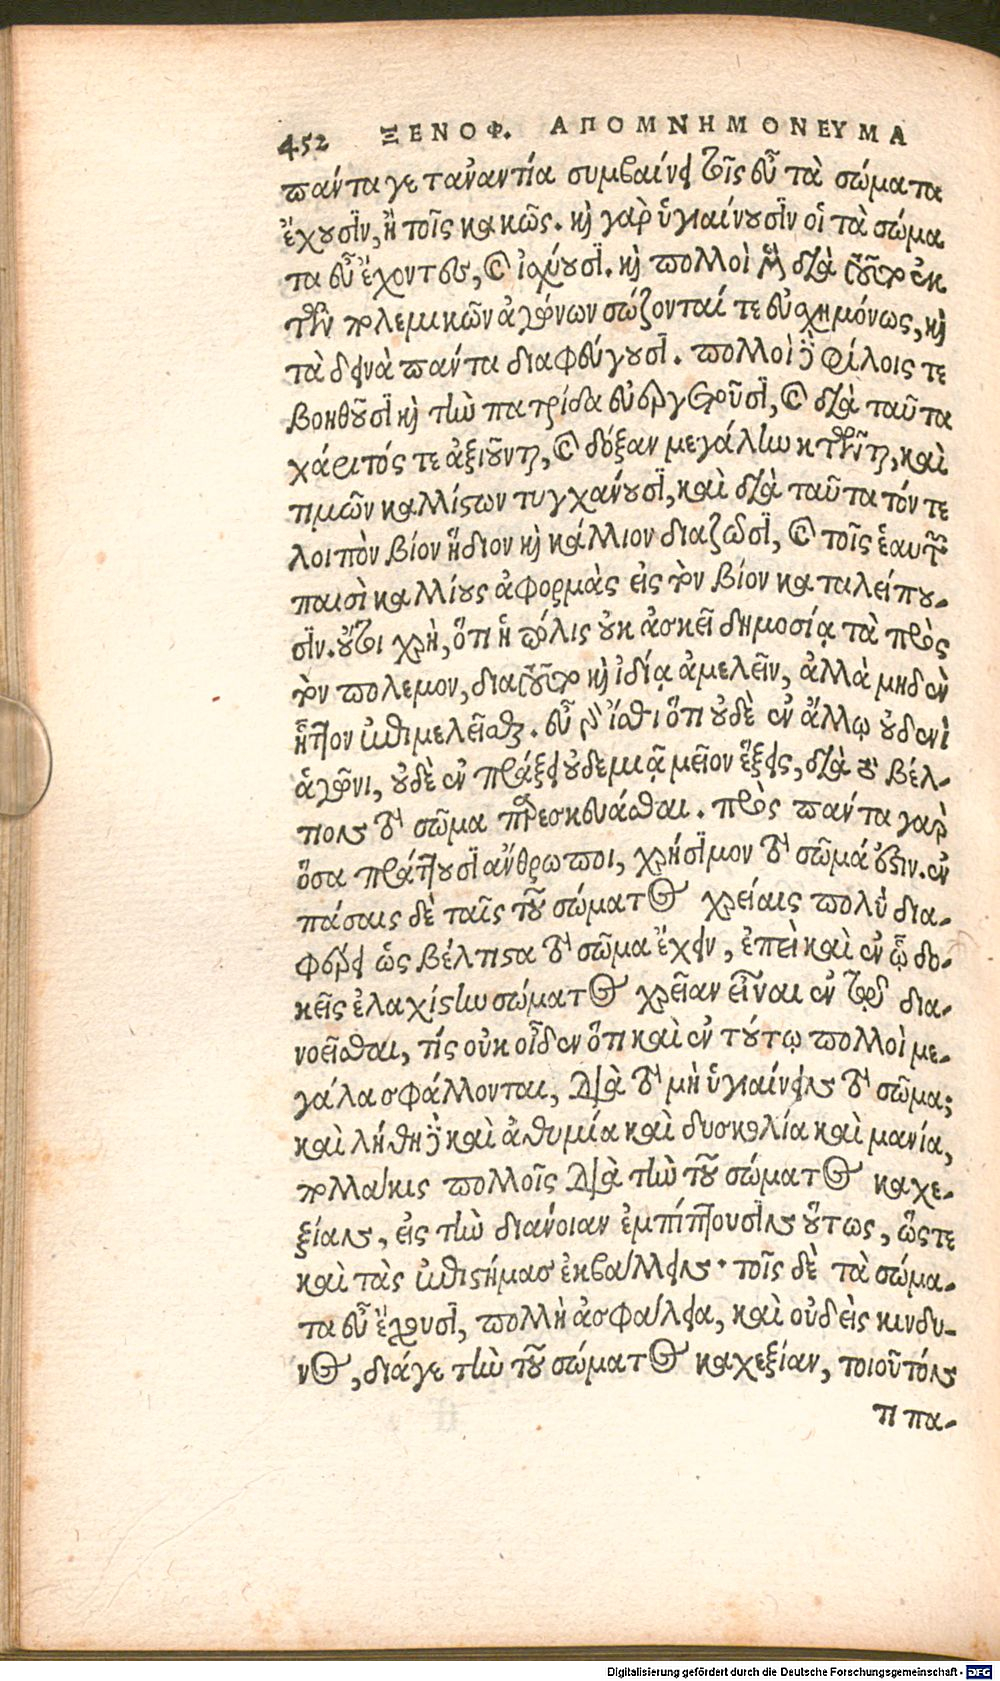 452 ΞΕΝΟΦ. ΑΠΟΜΝΗΜΟΝΕΥΜΑ
πάντα γε τἀναντία συμβαίνει τοῖς εὖ τὰ σώματα
ἔχουσιν, ἢ τοῖς κακῶς. καὶ γὰρ ὑγιαίνουσιν οἱ τὰ σώμα
τα εὖ ἔχοντες, καὶ ἰσχύουσι. καὶ πολλοὶ μὲν διὰ τοῦτο ἐκ
τῶν πολεμικῶν ἀγώνων σώζονταί τε εὐσχημόνως, καὶ
τὰ δεινὰ πάντα διαφεύγουσι. πολλοὶ δὲ φίλοις τε
βοηθοῦσι καὶ τὴν πατρίδα εὐεργετοῦσι, καὶ διὰ ταῦτα
χάριτός τε ἀξιοῦνται, καὶ δόξαν μεγάλην κτῶνται, καὶ
τιμῶν καλλίστων τυγχάνουσι, καὶ διὰ ταῦτα τόν τε
λοιπὸν βίον ἥδιον καὶ κάλλιον διαζῶσι, καὶ τοῖς ἑαυτῶν
παισὶ καλλίους ἀφορμὰς εἰς τὸν βίον καταλείπου-
σιν. οὔτοι χρὴ, ὅτι ἡ πόλις οὐκ ἀσκεῖ δημοσίᾳ τὰ πρὸς
τὸν πολεμον, διὰ τοῦτο καὶ ἰδίᾳ ἀμελεῖν, ἀλλὰ μηδὲν
ἧττον ἐπιμελεῖσθαι. εὖ γὰρ ἴσθι ὅτι οὐδὲ ἐν ἄλλῳ οὐδενὶ
ἀγῶνι, οὐδὲ ἐν πράξει οὐδεμιᾷ μεῖον ἕξεις, διὰ τὸ βέλ-
τιον τὸ σῶμα παρεσκευάσθαι. πρὸς πάντα γὰρ
ὅσα πράττουσι ἄνθρωποι, χρήσιμον τὸ σῶμά ἐστιν. ἐν
πάσαις δὲ ταῖς τοῦ σώματος χρείαις πολὺ δια-
φέρει ὡς βέλτιστα τὸ σῶμα ἔχειν, ἐπεὶ καὶ ἐν ᾧ δο-
κεῖς ἐλαχίστην σώματος χρείαν εἶναι ἐν τῷ δια-
νοεῖσθαι, τίς οὐκ οἶδεν ὅτι καὶ ἐν τούτῳ πολλοὶ με-
γάλα σφάλλονται, διὰ τὸ μὴ ὑγιαίνειν τὸ σῶμα;
καὶ λήθη δὲ καὶ ἀθυμία καὶ δυσκολία καὶ μανία,
πολλάκις πολλοῖς διὰ τὴν τοῦ σώματος καχε-
ξίαν, εἰς τὴν διάνοιαν ἐμπίπτουσιν οὕτως, ὥστε
καὶ τὰς ἐπιστήμας ἐκβάλλειν· τοῖς δὲ τὰ σώμα-
τα εὖ ἔχουσι, πολλὴ ἀσφάλεια, καὶ οὐδεὶς κινδυ-
νος, διά γε τὴν τοῦ σώματος καχεξίαν, τοιοῦτόν
τι πα-
Digitalisierung gefördert durch die Deutsche Forschungsgemeinschaft - DFG